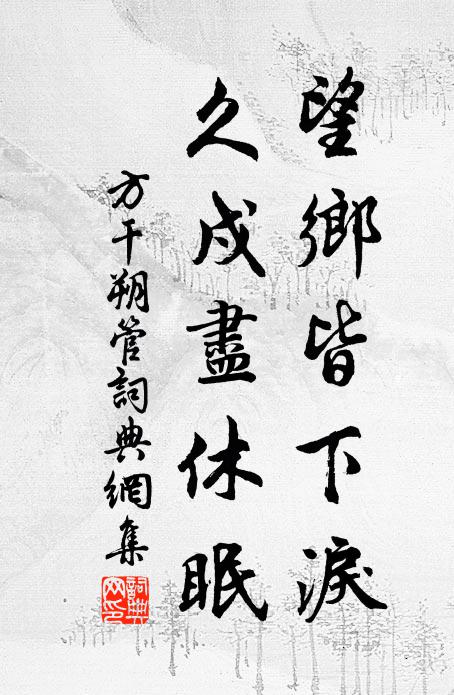 望鄉皆下淚
久戍盡休眠
方干朔管詞典網集